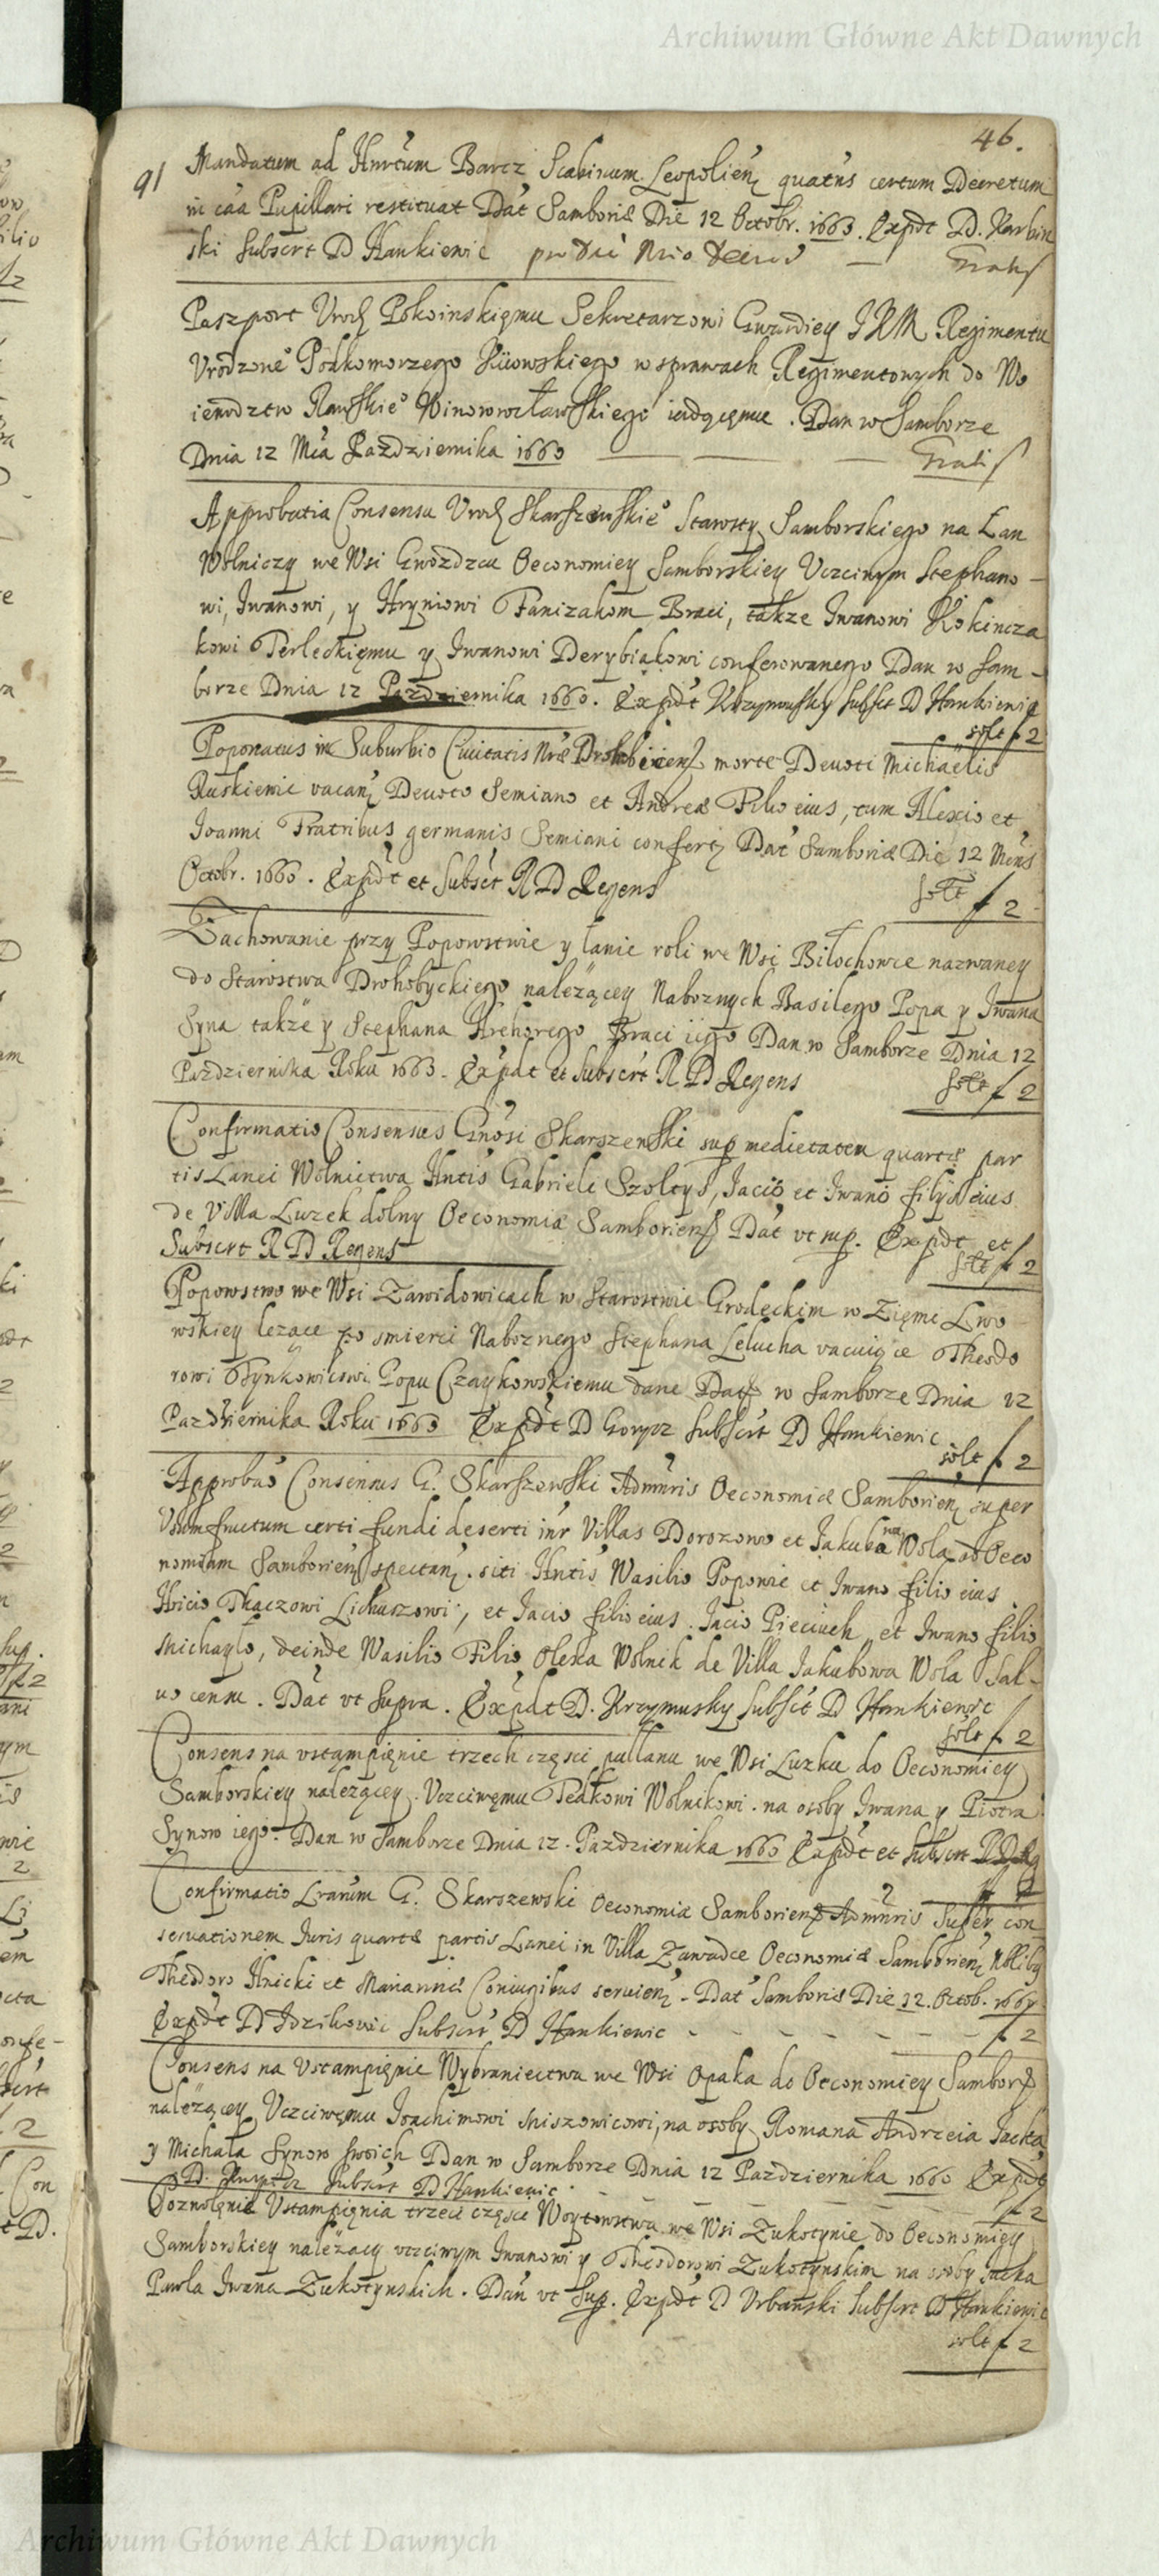 Archiwum Główne Akt Dawnych
46.
91
Mandatum ad Hnrtum Barcz Scabinum Leopolien quatns certum Decretum
in caa Pupillari restituat Dat Samboriæ Die 12 Octobr. 1663. Expdt D. Karbin
ski Subscrt D Hankiewic Gratis
Paszport Urodz Pokoinskięmu Sekretarzowi Gwardiey JKM Regimentu
Urodzone° Podkomorzego Kiiowskiego w sprawach Regimentowych do Wo
iewodztw Rawskie° Winowrocławskiego iadącęmu. Dan w Samborze
Dnia 12 Mca Pazdziernika 1663 Gratis
Approbatia Consensu Urodz Skarszewskie° Starosty Samborskiego na Łan
Wolniczy we Wsi Gwozdzcu Oeconomiey Samborskiey Uczciwym Stephano-
wi, Iwanowi, y Hryniowi Fanizakom Braci, takze Iwanowi Kokincza
kowi Terleckięmu y Iwanowi Derybiąkowi conferowanego Dan w Sam-
borze Dnia 12 Pazdziernika 1663. Expdt Krzymusky Subsct D Hankiewic
solt f 2
Poponatus in Suburbio Civitatis Nræ Drohbicien morte Devoti Michaelis
Ruskiewic vacan Devoto Semiano et Andreæ Filio eius, tum Alexio et
Joanni Fratribus germanis Semiani confert Dat Samboriæ Die 12 Mens
Octobr. 1663. Expdt et Subsct R D Regens solt f 2
Zachowanie przy Popowstwie y łanie roli we Wsi Biłochowce nazwaney
do Starostwa Drohobyckiego nalezącey Naboznych Basilego Popa y Iwana
Syna takze y Stephana Hrehorego Braci iego Dan w Samborze Dnia 12
Pazdziernika Roku 1663. Expdt et Subscrt R D Regens solt f 2
Confirmatio Consensus Gnosi Skarszewski sup medietatem quartæ par
tis Lanei Wolnictwa Hntis Gabrieli Szoltys, Jacio et Iwano filijs eius
de Villa Luzek dolny Oeconomiæ Samborien Dat vt sup. Expdt et
Subscrt R D Regens solt f 2
Popowstwo we Wsi Zawidowicach w Starostwie Grodeckim w Zięmi Lwo
wskiey lezące po smierci Naboznego Stephana Lelucha vacuiące Theodo
rowi Fynkowicowi Popu Czaykowskiemu dane Dat w Samborze Dnia 12
Pazdziernika Roku 1663 Expdt D Gorycz Subscrt D Hankiewic
solt f 2
Approbao Consensus G. Skarszewski Admnris Oeconomiæ Samborien super
Usumfructum certi fundi deserti intr Villas Dorozowo et Jakubowa Wola ad Oeco
nomiam Samborien spectan. siti Hntis Wasilio Popowic et Iwano filio eius
Hicio Tkaczowi Lichuszowi, et Jacio filio eius. Jacio Pieciuch et Iwano filio
Michayło, deinde Wasilio Filio Olexa Wolnik de Villa Jakubowa Wola Sal-
uo censu. Dat vt supra. Expdt D. Krzymusky Subsct D Hankiewic
solt f 2
Consens na vstąmpięnie trzech częsci pułłanu we Wsi Luzku do Oeconomiey
Samborskiey nalezącey. Uczciwęmu Fedkowi Wolnikowi. na osoby Iwana y Piotra
Synow iego. Dan w Samborze Dnia 12. Pazdziernika 1663 Expdt et subscrt R D Rg
f 2
Confirmatio Lrarum G. Skarszewski Oeconomiæ Samborien Admnris Super con
seruationem Iuris quartæ partis Lanei in Villa Zawadce Oeconomiæ Samborien Nblibg
Theodoro Ilnicki et Mariannæ Coniugibus seruien. Dat Samboriæ Die 12. Octob. 1663
Expdt D Idzikowic Subscrt D Hankiewic f 2
Consens na Vstampięnie Wybraniectwa we Wsi Opaka do Oeconomiey Sambors
nalezącey Uczciwęmu Joachimowi Miszowicowi, na osoby Romana Andrzeia Jacka
y Michała Synow swoich Dan w Samborze Dnia 12 Pazdziernika 1663 Expdt
D. Subscrt D Hankiewic. f 2
Pozwolęnie Vstampięnia trzeci częsci Woytowstwa we Wsi Zukotynie do Oeconomiey
Samborskiey nalezący vczciwym Iwanowi y Theodorowi Zukotynskim na osoby Jacka
Pawla Iwana Zukotynskich. Dan vt Sup. Expdt D Urbanski Subscrt D Hankiewic
solt f 2
Archiwum Główne Akt Dawnych